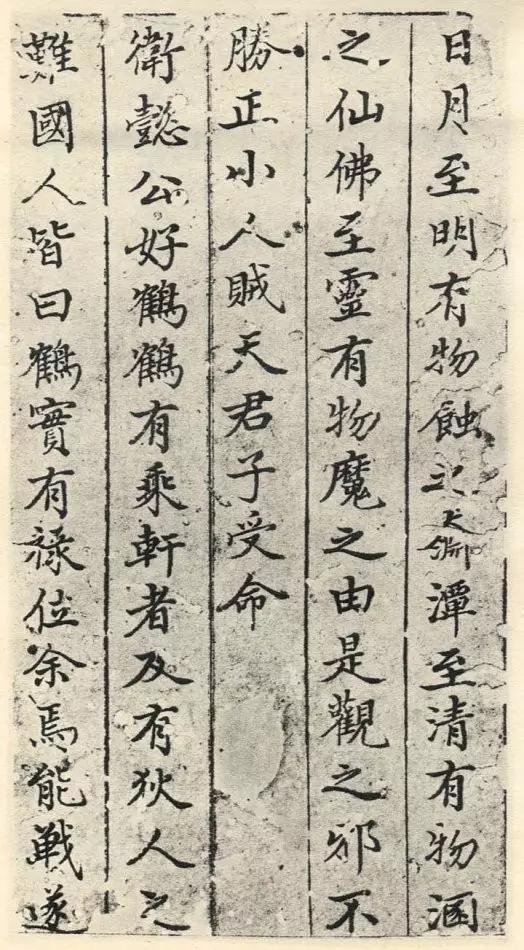 日月至明有物蝕之淵潭至清有物溷
之仙佛至靈有物魔之由是觀之邪不
勝正小人賊天君子受命
衛懿公好鶴鶴有乘軒者及有狄人之
難國人皆曰鶴實有祿位余焉能戰遂